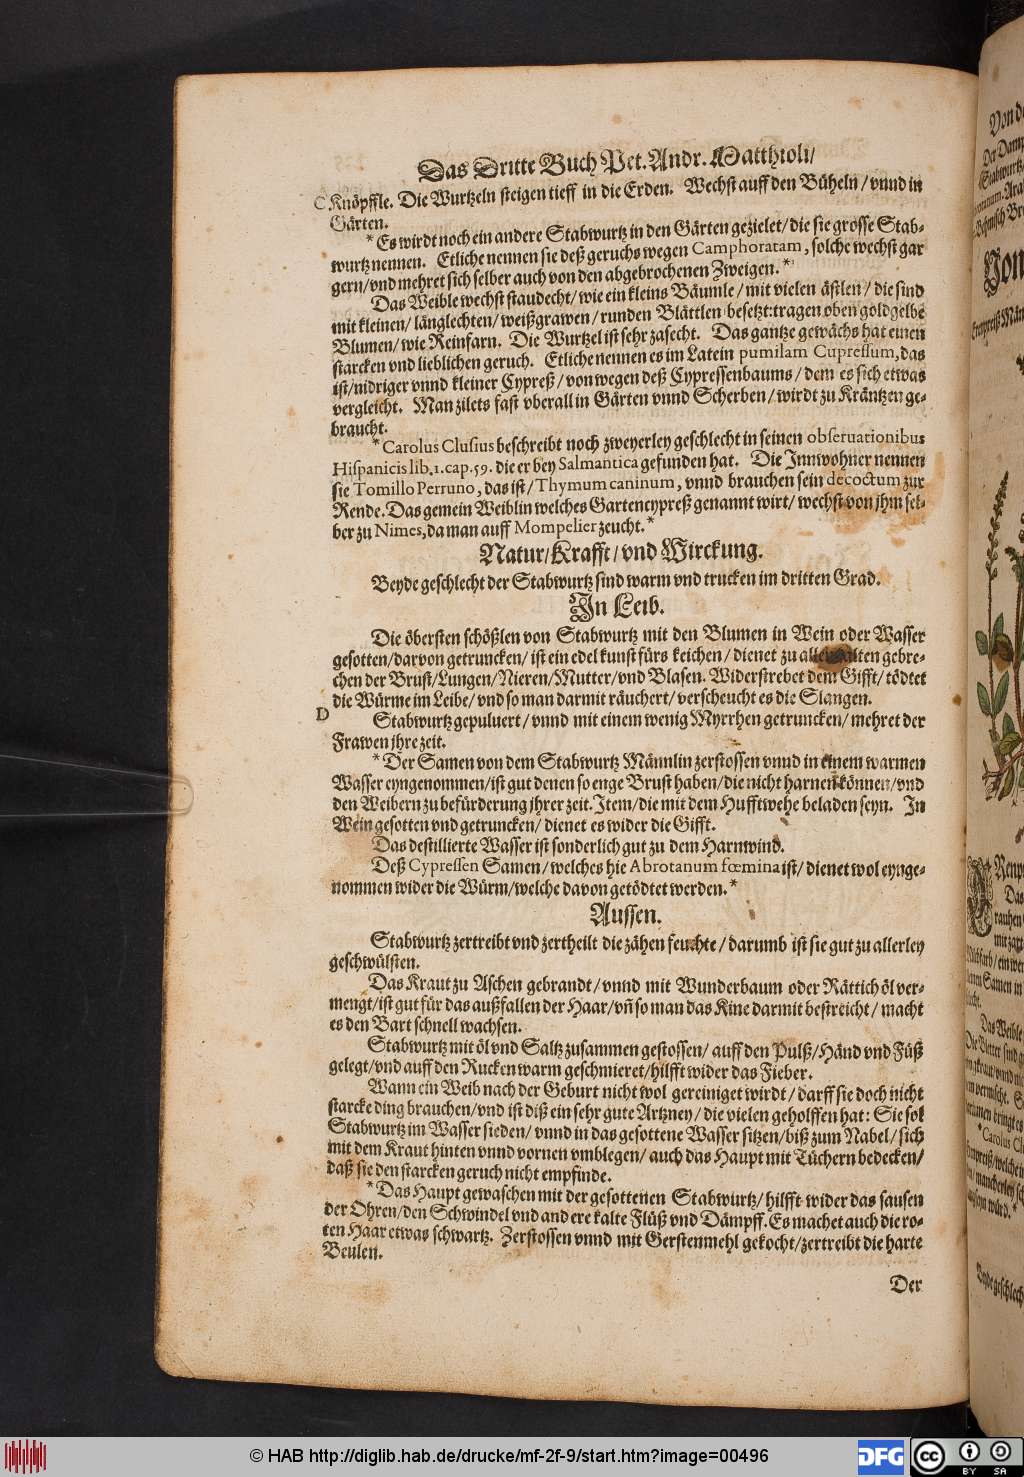 Das Dritte Buch Pet. Andr. Matthioli/
C Knöpffle. Die Wurtzeln steigen tieff in die Erden. Wechst auff den Büheln / vnnd in
Gärten.
* Es wirdt noch ein andere Stabwurtz in den Gärten gezielet/die sie grosse Stab-
wurtz nennen. Etliche nennen sie deß geruchs wegen Camphoratam, solche wechst gar
gern/vnd mehret sich selber auch von den abgebrochenen Zweigen. *
Das Weible wechst staudecht/wie ein kleins Bäumle / mit vielen ästlen / die sind
mit kleinen/ länglechten/ weißgrawen / runden Blättlen besetzt: tragen oben goldgelbe
Blumen/ wie Reinfarn. Die Wurtzel ist sehr zasecht. Das gantze gewächs hat einen
starcken vnd lieblichen geruch. Etliche nennen es im Latein pumilam Cupressum, das
ist/nidriger vnnd kleiner Cypreß / von wegen deß Cypressenbaums / dem es sich etwas
vergleicht. Man zilets fast vberall in Gärten vnnd Scherben/ wirdt zu Kräntzen ge-
braucht.
* Carolus Clusius beschreibt noch zweyerley geschlecht in seinen obseruationibus
Hispanicis lib. 1. cap. 59. die er bey Salmantica gefunden hat. Die Innwohner nennen
sie Tomillo Perruno, das ist/ Thymum caninum, vnnd brauchen sein decoctum zur
Rende. Das gemein Weiblin welches Gartencypreß genannt wirt/ wechst von jhm sel-
ber zu Nimes, da man auff Mompelier zeucht. *
Natur/ Krafft/ vnd Wirckung.
Beyde geschlecht der Stabwurtz sind warm vnd trucken im dritten Grad.
In Leib.
Die öbersten schößlen von Stabwurtz mit den Blumen in Wein oder Wasser
gesotten/darvon getruncken/ ist ein edel kunst fürs keichen/ dienet zu allen kalten gebre-
chen der Brust/Lungen/Nieren/Mutter/vnd Blasen. Widerstrebet dem Gifft/ tödtet
die Würme im Leibe/ vnd so man darmit räuchert/ verscheucht es die Slangen.
D Stabwurtz gepuluert / vnnd mit einem wenig Myrrhen getruncken/ mehret der
Frawen jhre zeit.
* Der Samen von dem Stabwurtz Männlin zerstossen vnnd in einem warmen
Wasser eyngenommen/ist gut denen so enge Brust haben/die nicht harnen können/vnd
den Weibern zu befürderung jhrer zeit. Item/die mit dem Hufftwehe beladen seyn. In
Wein gesotten vnd getruncken/ dienet es wider die Gifft.
Das destillierte Wasser ist sonderlich gut zu dem Harnwind.
Deß Cypressen Samen/ welches hie Abrotanum fœmina ist/ dienet wol eynge-
nommen wider die Würm/welche davon getödtet werden. *
Aussen.
Stabwurtz zertreibt vnd zertheilt die zähen feuchte / darumb ist sie gut zu allerley
geschwülsten.
Das Kraut zu Aschen gebrandt/ vnnd mit Wunderbaum oder Rättich öl ver-
mengt/ist gut für das außfallen der Haar/vñ so man das Kine darmit bestreicht / macht
es den Bart schnell wachsen.
Stabwurtz mit öl vnd Saltz zusammen gestossen/ auff den Pulß/Händ vnd Füß
gelegt/vnd auff den Rucken warm geschmieret/hilfft wider das Fieber.
Wann ein Weib nach der Geburt nicht wol gereiniget wirdt / darff sie doch nicht
starcke ding brauchen/vnd ist diß ein sehr gute Artzney / die vielen geholffen hat: Sie sol
Stabwurtz im Wasser sieden/ vnnd in das gesottene Wasser sitzen/biß zum Nabel / sich
mit dem Kraut hinten vnnd vornen vmblegen/ auch das Haupt mit Tüchern bedecken/
daß sie den starcken geruch nicht empfinde.
* Das Haupt gewaschen mit der gesottenen Stabwurtz/ hilfft wider das sausen
der Ohren/den Schwindel vnd andere kalte Flüß vnd Dämpff. Es machet auch die ro-
ten Haar etwas schwartz. Zerstossen vnnd mit Gerstenmehl gekocht/zertreibt die harte
Beulen.
Der
© HAB http://diglib.hab.de/drucke/mf-2f-9/start.htm?image=00496
DFG
cc BY SA